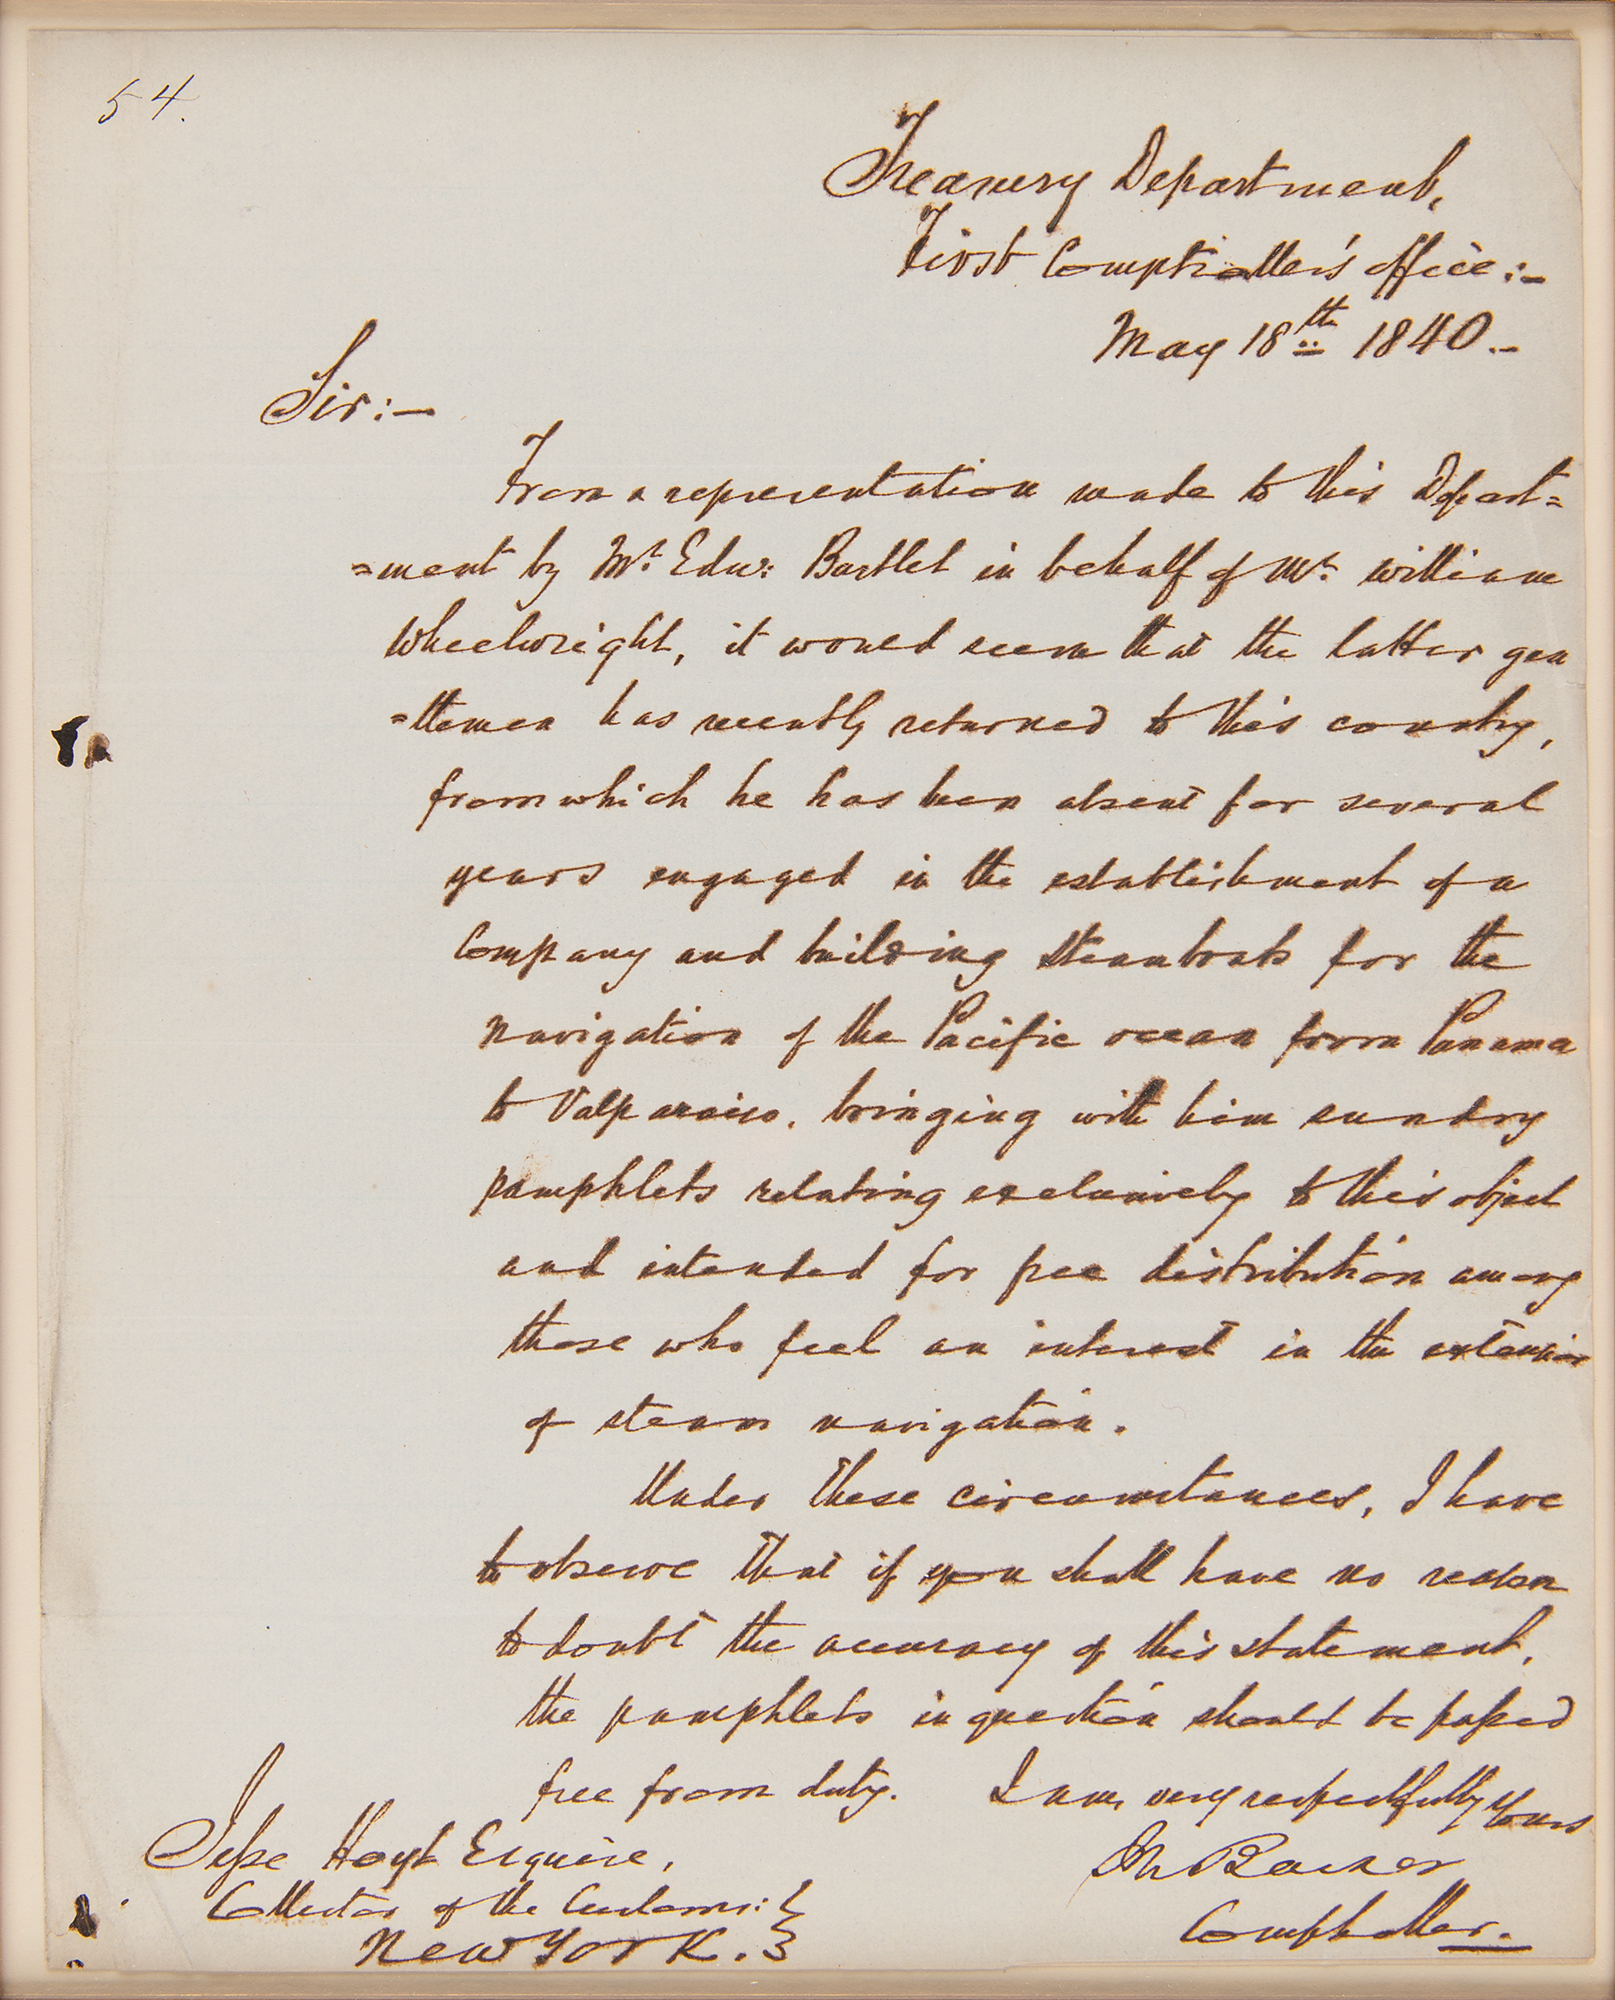 54.
Treasury Department,
First Comptroller's office:-
May 18th 1840.-
Sir:-
From a representation made to this Depart=
=ment by Mr. Edw: Bartlet in behalf of Mr. William
Wheelwright, it would seem that the latter gen
=tlemen has recently returned to this country,
from which he has been absent for several
years engaged in the establishment of a
Company and building steamboats for the
navigation of the Pacific ocean from Panama
to Valparaiso, bringing with him sundry
pamphlets relating exclusively to this object
and intended for free distribution among
those who feel an interest in the extension
of steam navigation.
Under these circumstances, I have
to observe that if you shall have no reason
to doubt the accuracy of this statement,
the pamphlets in question should be passed
free from duty. I am, very respectfully yours
Jesse Hoyt Esquire,
Collector of the Customs: }
New York. }
Barker
Comptroller.